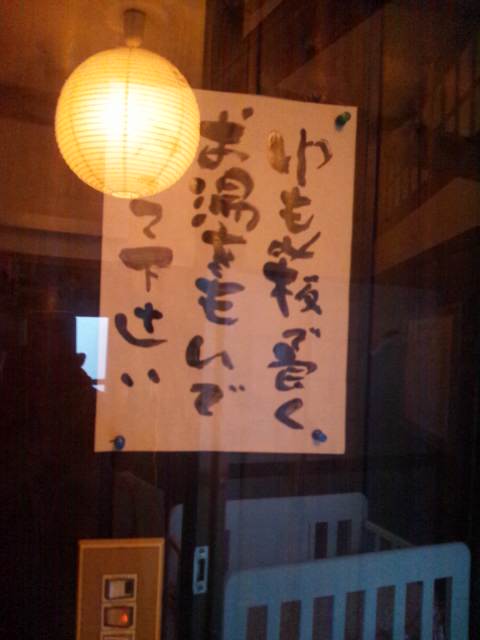 ゆもみ板で良く
お湯をもんで
て下さい